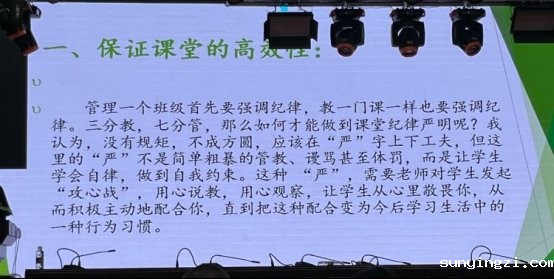 一、保证课堂的高效性：
管理一个班级首先要强调纪律，教一门课一样也要强调纪
律。三分教，七分管，那么如何才能做到课堂纪律严明呢？我
认为，没有规矩，不成方圆，应该在“严”字上下工夫，但这
里的“严”不是简单粗暴的管教、谩骂甚至体罚，而是让学生
学会自律，做到自我约束。这种 “严”，需要老师对学生发起
“攻心战”，用心说教，用心观察，让学生从心里敬畏你，从
而积极主动地配合你，直到把这种配合变为今后学习生活中的
一种行为习惯。
sunyingzi.com